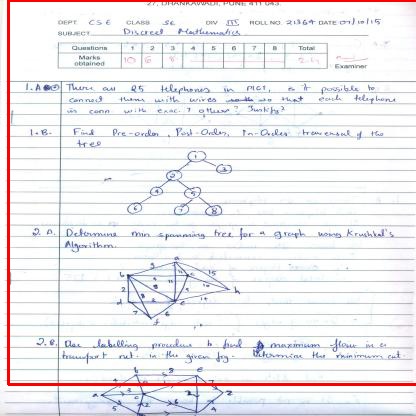 27, DHANKAWADI, PUNE 411 043.
DEPT. CSE CLASS SE DIV III ROLL NO. 21364 DATE 07/10/15
SUBJECT Discreet Mathematics
Questions 1 2 3 4 5 6 7 8 Total
Marks obtained 10 6 8 24
Examiner
1.A There are 25 telephones in PICT, is it possible to
connect them with wires so that each telephone
is conn with exac. 7 others? Justify?
1.B. Find Pre-order, Post-Order, In-Order traversal of the
tree
1
2 3
4 5
6 7 8
2.A. Determine min spanning tree for a graph using Krushkal's
Algorithm.
a
b c
d e h
f
2.B. Use labelling procedure to find maximum flow in a
transport net. in the given fig. Determine the minimum cut.
b 8 e
a z